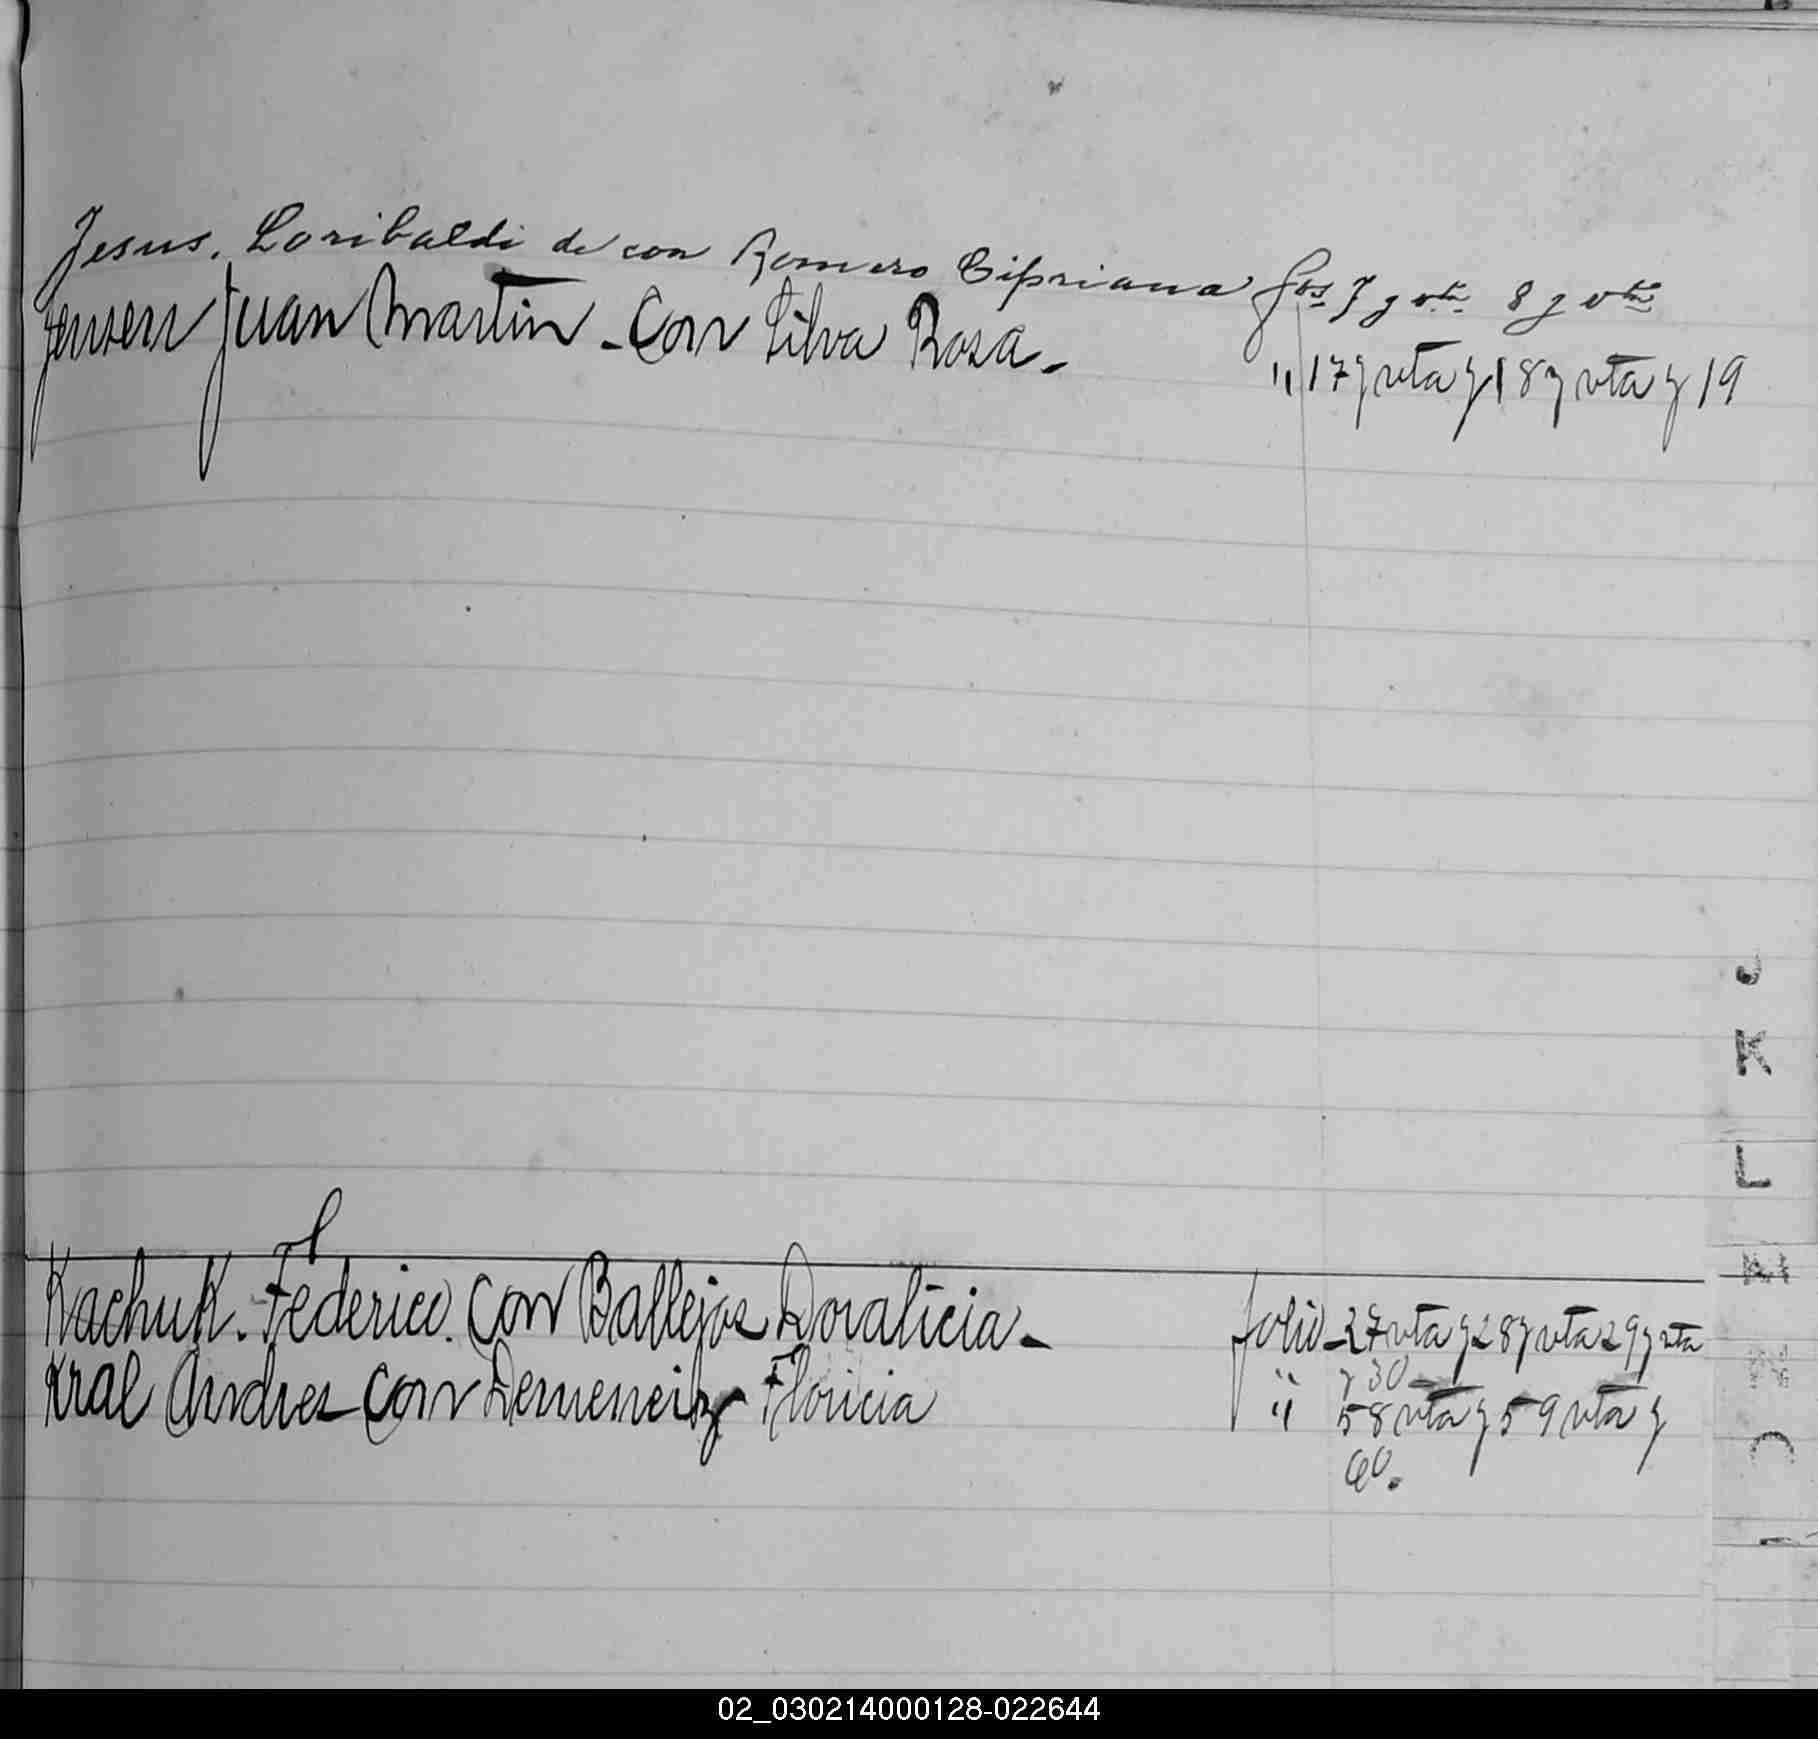 Jesus, Loribaldi de con Romero Cipriana fos 7 y vta 8 y vta
Jensen Juan Martin - Con Silva Rosa.
" 17 y vta y 18 y vta y 19
J
K
L
M
Kachuk. Federico. Con Ballejos Doralicia -
folio - 27 vta y 28 y vta 29 y vta
y 30 -
Kral Andres Con Floricia
" 58 vta y 59 vta y
60.
02_030214000128-022644